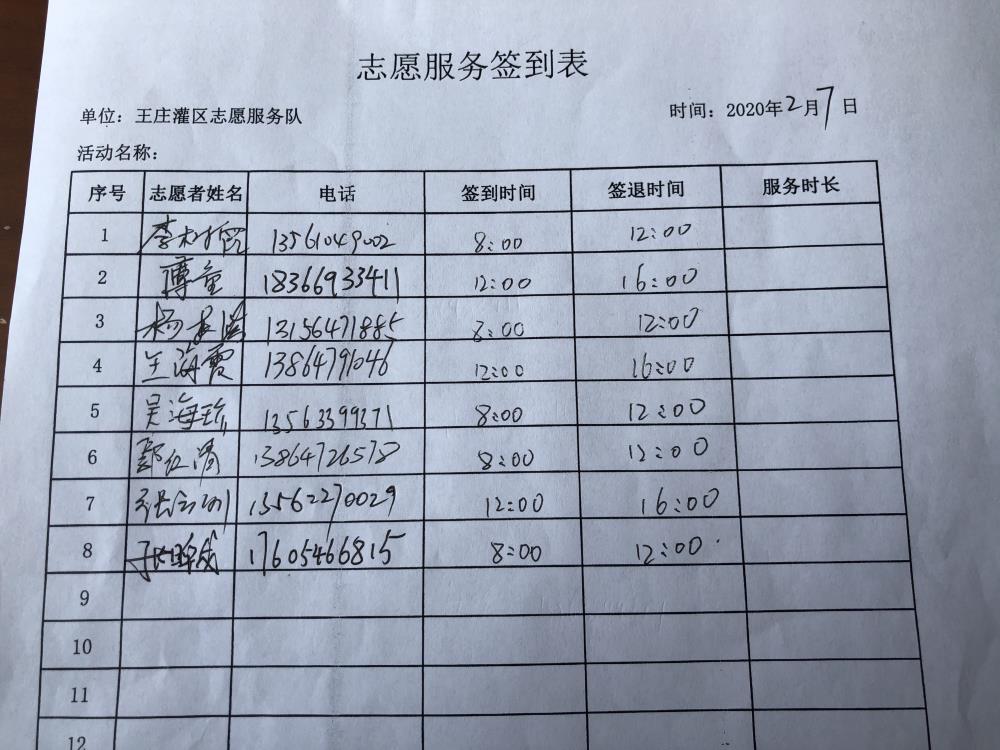 志愿服务签到表
单位：王庄灌区志愿服务队 时间：2020年2月7日
活动名称：
序号 志愿者姓名 电话 签到时间 签退时间 服务时长
1 李 13561049002 8:00 12:00
2 薄童 18366933411 12:00 16:00
3 杨 13156471885 8:00 12:00
4 王海霞 13864791046 12:00 16:00
5 吴海珍 13563399371 8:00 12:00
6 红 13864726578 8:00 12:00
7 张 13562270029 12:00 16:00
8 17605466815 8:00 12:00
9
10
11
12